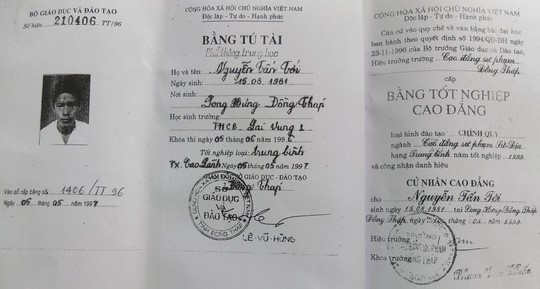 BỘ GIÁO DỤC VÀ ĐÀO TẠO
Số hiệu 210406 TT/96
Vào sổ cấp bằng số 1406/TT 96
Ngày 05 tháng 05 năm 1997
CỘNG HÒA XÃ HỘI CHỦ NGHĨA VIỆT NAM
Độc lập - Tự do - Hạnh phúc
BẰNG TÚ TÀI
Phổ thông trung học
Họ và tên: Nguyễn Tấn Tới
Ngày sinh: 15.08.1981
Nơi sinh:
Long Hưng Đồng Tháp
Học sinh trường:
THCB Lai Vung 1
Khóa thi ngày 05 tháng 06 năm
Tốt nghiệp loại: trung bình
TX. Cao Lãnh ngày 05 tháng 05 năm 1997
SỞ GIÁO DỤC - ĐÀO TẠO
Đồng Tháp
SỞ
GIÁO DỤC
VÀ
ĐÀO TẠO
LÊ-VŨ-HÙNG
CỘNG HÒA XÃ HỘI CHỦ NGHĨA VIỆT NAM
Độc lập - Tự do - Hạnh phúc
Căn cứ vào quy chế về văn bằng bậc đại học
ban hành theo quyết định số 1994/QĐ-ĐH ngày
23-11-1990 của Bộ trưởng Giáo dục và Đào tạo,
Hiệu trưởng trường Cao đẳng sư phạm
Đồng Tháp
cấp
BẰNG TỐT NGHIỆP
CAO ĐẲNG
loại hình đào tạo CHÍNH QUY
ngành Cao đẳng sư phạm
hạng Trung bình năm tốt nghiệp
và công nhận danh hiệu
CỬ NHÂN CAO ĐẲNG
cho Nguyễn Tấn Tới
sinh ngày 15.08.1981 tại Long Hưng Đồng Tháp
Đồng Tháp, ngày
Hiệu trưởng
Khoa trưởng